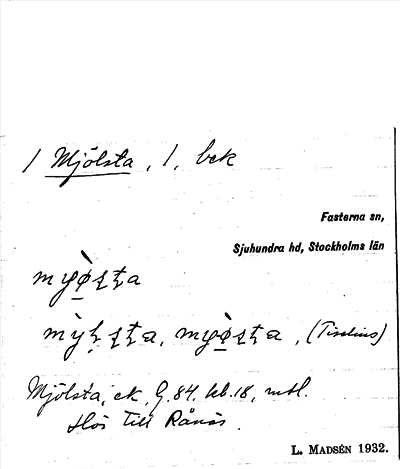 1 Mjölsta, 1, bek
Fasterna sn,
Sjuhundra hd, Stockholms län
(Tiselius)
Mjölsta, ek, G. 84. kb. 18, mtl.
Hör till Rånäs.
L. MADSÉN 1932.